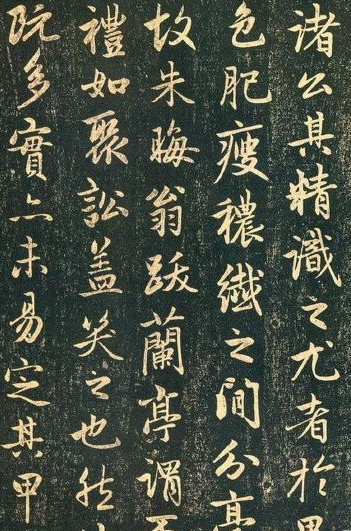 诸公其精識之尤者於墨
色肥瘦穠纖之間分毫
故朱晦翁跋蘭亭謂不
禮如聚訟盖笑之也然
阮多實亦未易定其甲